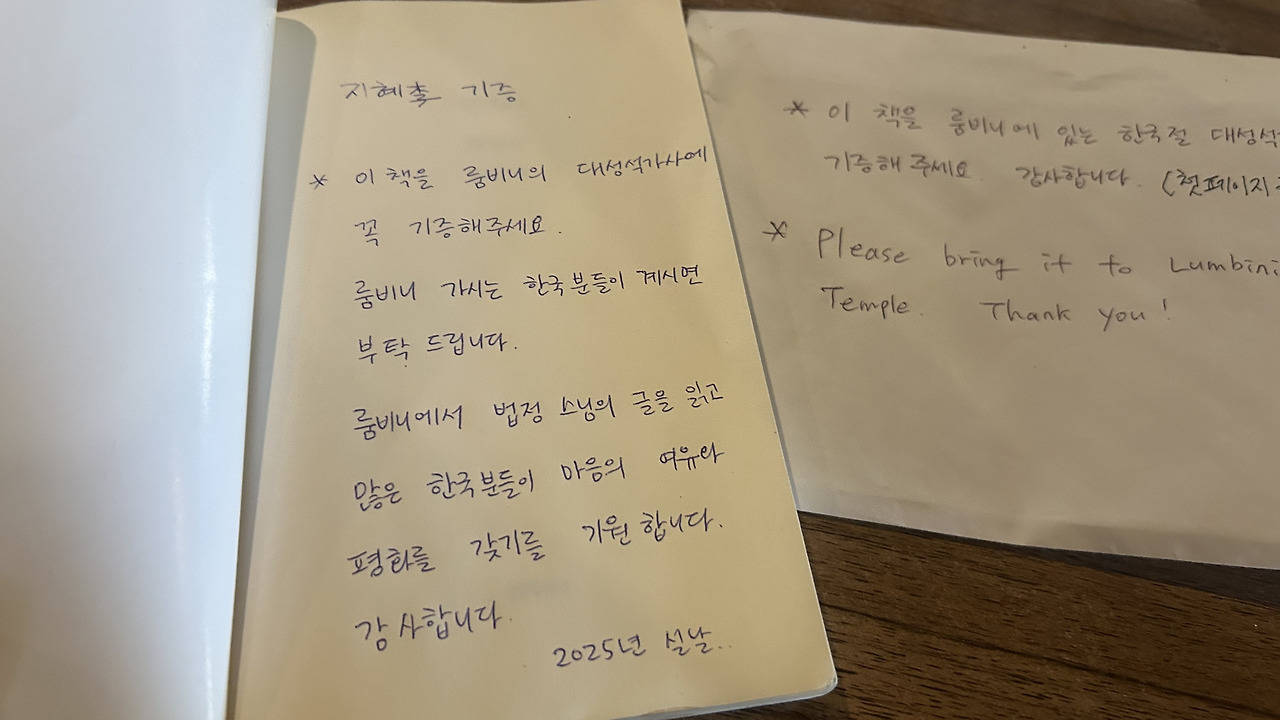 지혜롲 기증
* 이 책을 룸비니의 대성석가사에
꼭 기증해주세요.
룸비니 가시는 한국분들이 계시면
부탁 드립니다.
룸비니에서 법정 스님의 글을 읽고
많은 한국분들이 마음의 여유와
평화를 갖기를 기원합니다.
감사합니다.
2025년 설날..
* 이 책을 룸비니에 있는 한국절 대성석
기증해 주세요. 감사합니다. (첫페이지
* Please bring it to Lumbini
Temple. Thank you!